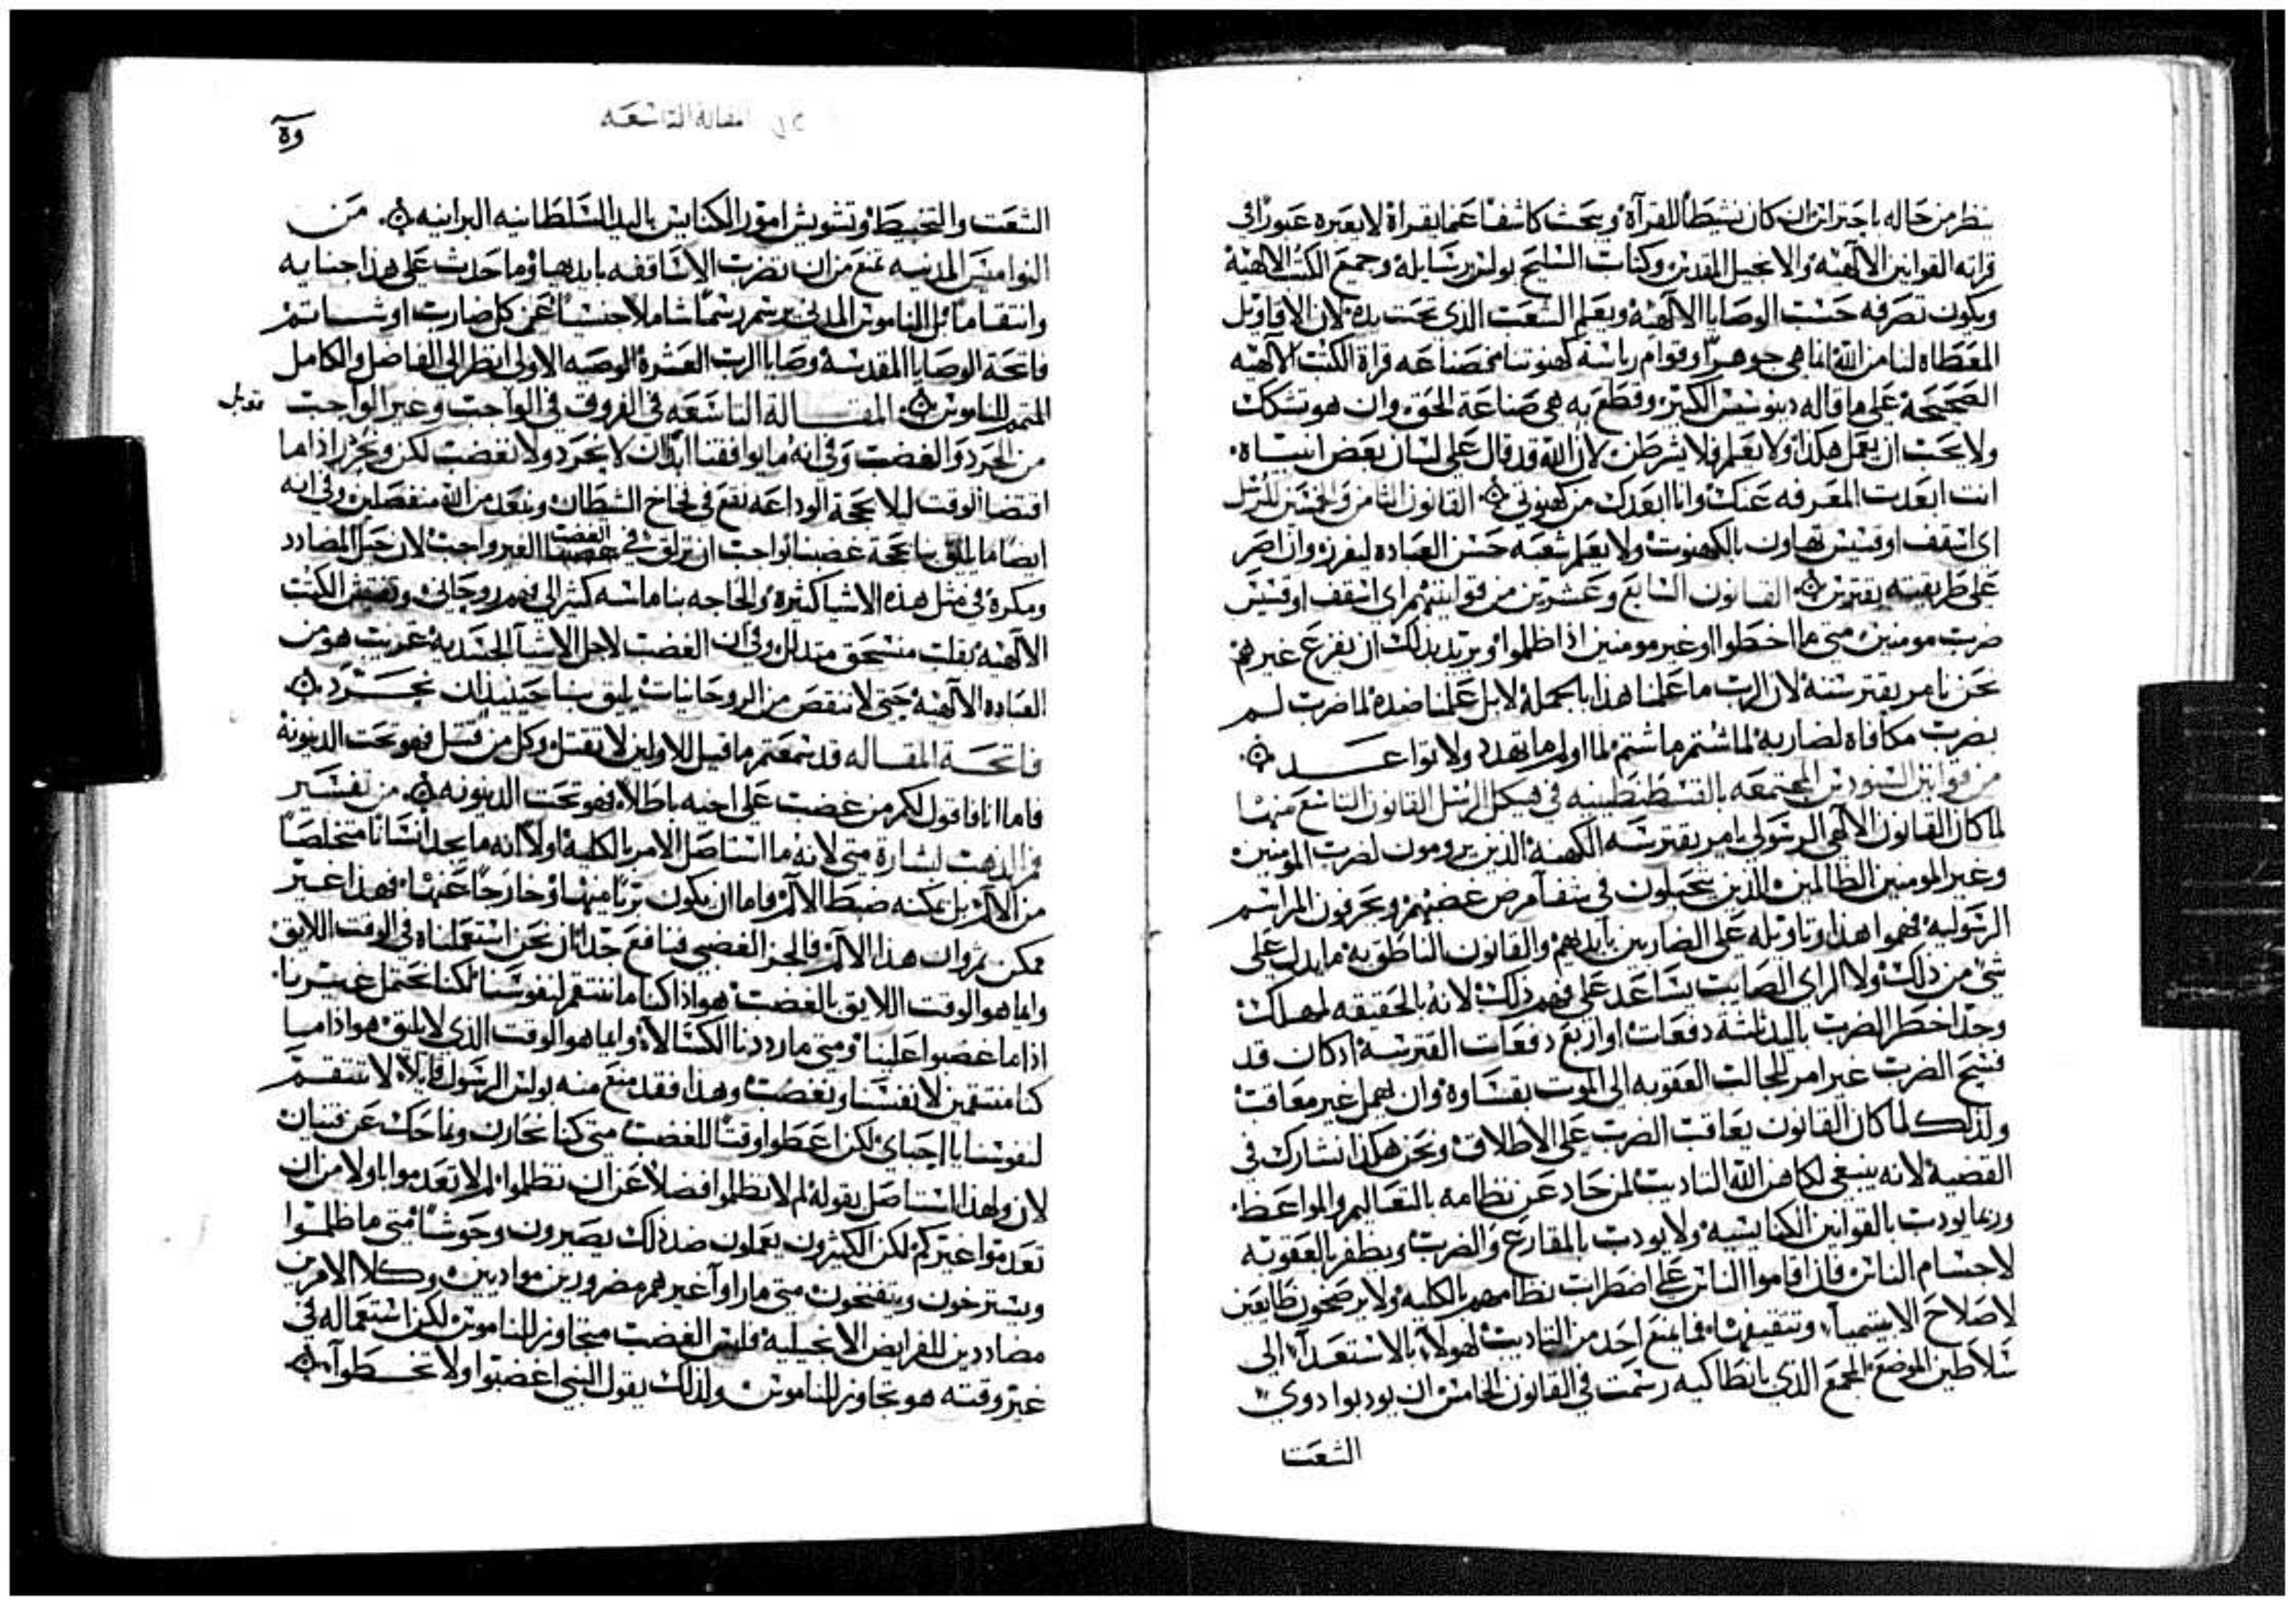 ينظر من حاله باحتراز ان كان نشيطاً للقرآة ويبحث كاشفاً عما يقراه لا يعبره عبوراً في
قراته القوانين الالهيه والانجيل المقدس وكتاب السليح بولس رسايله وجميع الكتب الالهيه
ويكون تصرفه حسب الوصايا الالهيه ويعلم الشعب الذي تحت يده لان الاقاويل
المعطاه لنا من الله انما هي جوهر وقوام رياسة كهنوتنا قراة الكتب الالهيه
الصحيحة على ما قاله ديونيسيس الكبير وقطع به هي صناعة الحق وان هو تشكك
ولا يحب ان يعمل هكذا ولا يعلم فلا يشرطن لان الله قد قال على لسان بعض انبياه
انت ابعدت المعرفه عنك وانا ابعدك من كهنوتي القانون الثامن والخمسين للرسل
اي اسقف او قسيس تهاون بالكهنوت ولا يعلم شعبه حسن العباده ليفرز وان اصر
على طريقيته يقترس القانون السابع وعشرين من قوانينهم اي اسقف او قسيس
ضرب مومنين متى ما اخطوا او غير مومنين اذا ظلموا ويريد بذلك ان يفزع غيرهم
نحن نامر بقترسته لان الرب ما علمنا هذا بالجملة لا بل علمنا ضده لما ضرب لم
يضرب مكافاه لضاربه لما شتم ما شتم لما اولم ما تهدد ولا تواعد
من قوانين السنودس المجتمعه بالقسطنطينيه في هيكل الرسل القانون التاسع منها
لما كان القانون الالهي الرسولي يامر بقترسه الكهنه الذين يرومون لضرب المومنين
وغير المومنين الظالمين الذين يتحيلون في شفا مرض غضبهم ويحرفون المراسم
الرسوليه فهموا هذا وتاويله على الضاربين بايديهم والقانون الناطق به ما يدل على
شي من ذلك ولا الراي الصايب يساعد على فهم ذلك لانه بالحقيقه لمهلك
وجداً خطر الضرب باليد ثلثة دفعات او اربع دفعات القترسة اذ كان قد
فسح الضرب غير امر العقوبه الى الموت بقساوه وان يهمل غير معاقب
ولذلك لما كان القانون يعاقب الضرب على الاطلاق ونحن هكذا نشارك في
القضية لانه ينبغي لكاهن الله التاديب لمن حاد عن نظامه بالتعاليم والمواعظ
وربما يودب بالقوانين الكنايسيه ولا يودب بالمقارع والضرب ويظفر بالعقوبه
لاجسام الناس فان اقاموا الناس على اضطراب نظامهم بالكليه ولا يرضخون طايعين
لاصلاح وتثقيفها فما يمنع احد من التاديب لهولاء بالاستعدآء الى
سلاطين الموضع المجمع الذي بانطاكيه رسمت في القانون الخامس ان يودبوا ذوي
الشعب
المقالة التاسعه
الشعب والتخبيط وتشويش امور الكنايس باليد السلطانيه البرانيه من
النواميس المدنيه تمنع من ان تضرب الاساقفه بايديها وما حدث على هذا جنايه
وانتقاماً بل الناموس المدني يرسم رسماً شاملاً عن كل ضارب او شاتم
فاتحة الوصايا المقدسة وصايا الرب العشرة الوصيه الاولى انظر الى الفاضل والكامل
المتمم للناموس المقالة التاسعه في الفروق في الواجب وغير الواجب
من الحرد والغضب وفي انه ما يوافقنا ابداً ان لا نحرد ولا نغضب لكن ونحرر اذا ما
اقتضا الوقت ليلا بحجة الوداعه نقع في فخاخ الشطان ونبعد من الله منفصلين وفي انه
ايضاً ما يليق بنا بحجة غضبنا الواجب ان نزلق في الغضب الغير واجب لان حيل المضادد
ومكره في مثل هذه الاشيا كثيرة والحاجه بنا ماسه كثير الى فهم روحاني وتفتيش الكتب
الالهيه بقلب منسحق متذلل وفي ان الغضب لاجل الاشيآ الجسديه غريب هو من
العباده الالهيه حتى لا ننقص من الروحانيات يليق بنا حينيذ ان نحرد
فاتحة المقاله قد سمعتم ما قيل للاولين لا تقتل وكل من قتل فهو تحت الدينونة
فاما انا فاقول لكم من غضب على اخيه باطلاً فهو تحت الدينونه من تفسير
فم الذهب لبشارة متى لانه ما استاصل الامر بالكليه اولاً لانه ما يجد انساناً متخلصاً
من الالم بل يمكنه ضبط الالم فاما ان يكون برياً منها وخارجاً عنها فهذا غير
ممكن ثم وان هذا الالم فالجز الغضبي فنافع جداً ان نحن استعملناه في الوقت اللايق
وايما هو الوقت اللايق بالغضب هو اذا كنا ما ننتقم لنفوسنا لكنا نحتمل غيرنا
اذا ما غضبوا علينا ومتى ما رددنا الكسالاء وايما هو الوقت الذي لا يليق هو اذا ما
كنا منتقمين لانفسنا ونغضب وهذا فقد منع منه بولس الرسول قايلاً لا تنتقم
لنفوسنا يا احباي لكن اعطوا وقتاً للغضب متى كنا نحارن ونماحك عن قنيان
لان ولهذا استاصل بقوله لم لا تظلموا فضلاً عن ان تظلموا لم لا تعدموا باولا من ان
تعدموا غيركم لكن الكثيرون يعملون ضد ذلك يصيرون وحوشاً متى ما ظلموا
ويسترخون وينفتحون متى ما راوا غيرهم مضرورين مواديين وكلا الامرين
مضاددين للفرايض الانجيليه فليس الغضب متجاوز للناموس لكن استعماله في
غير وقته هو تجاوز للناموس ولذلك يقول النبي اغضبوا ولا تخطوا